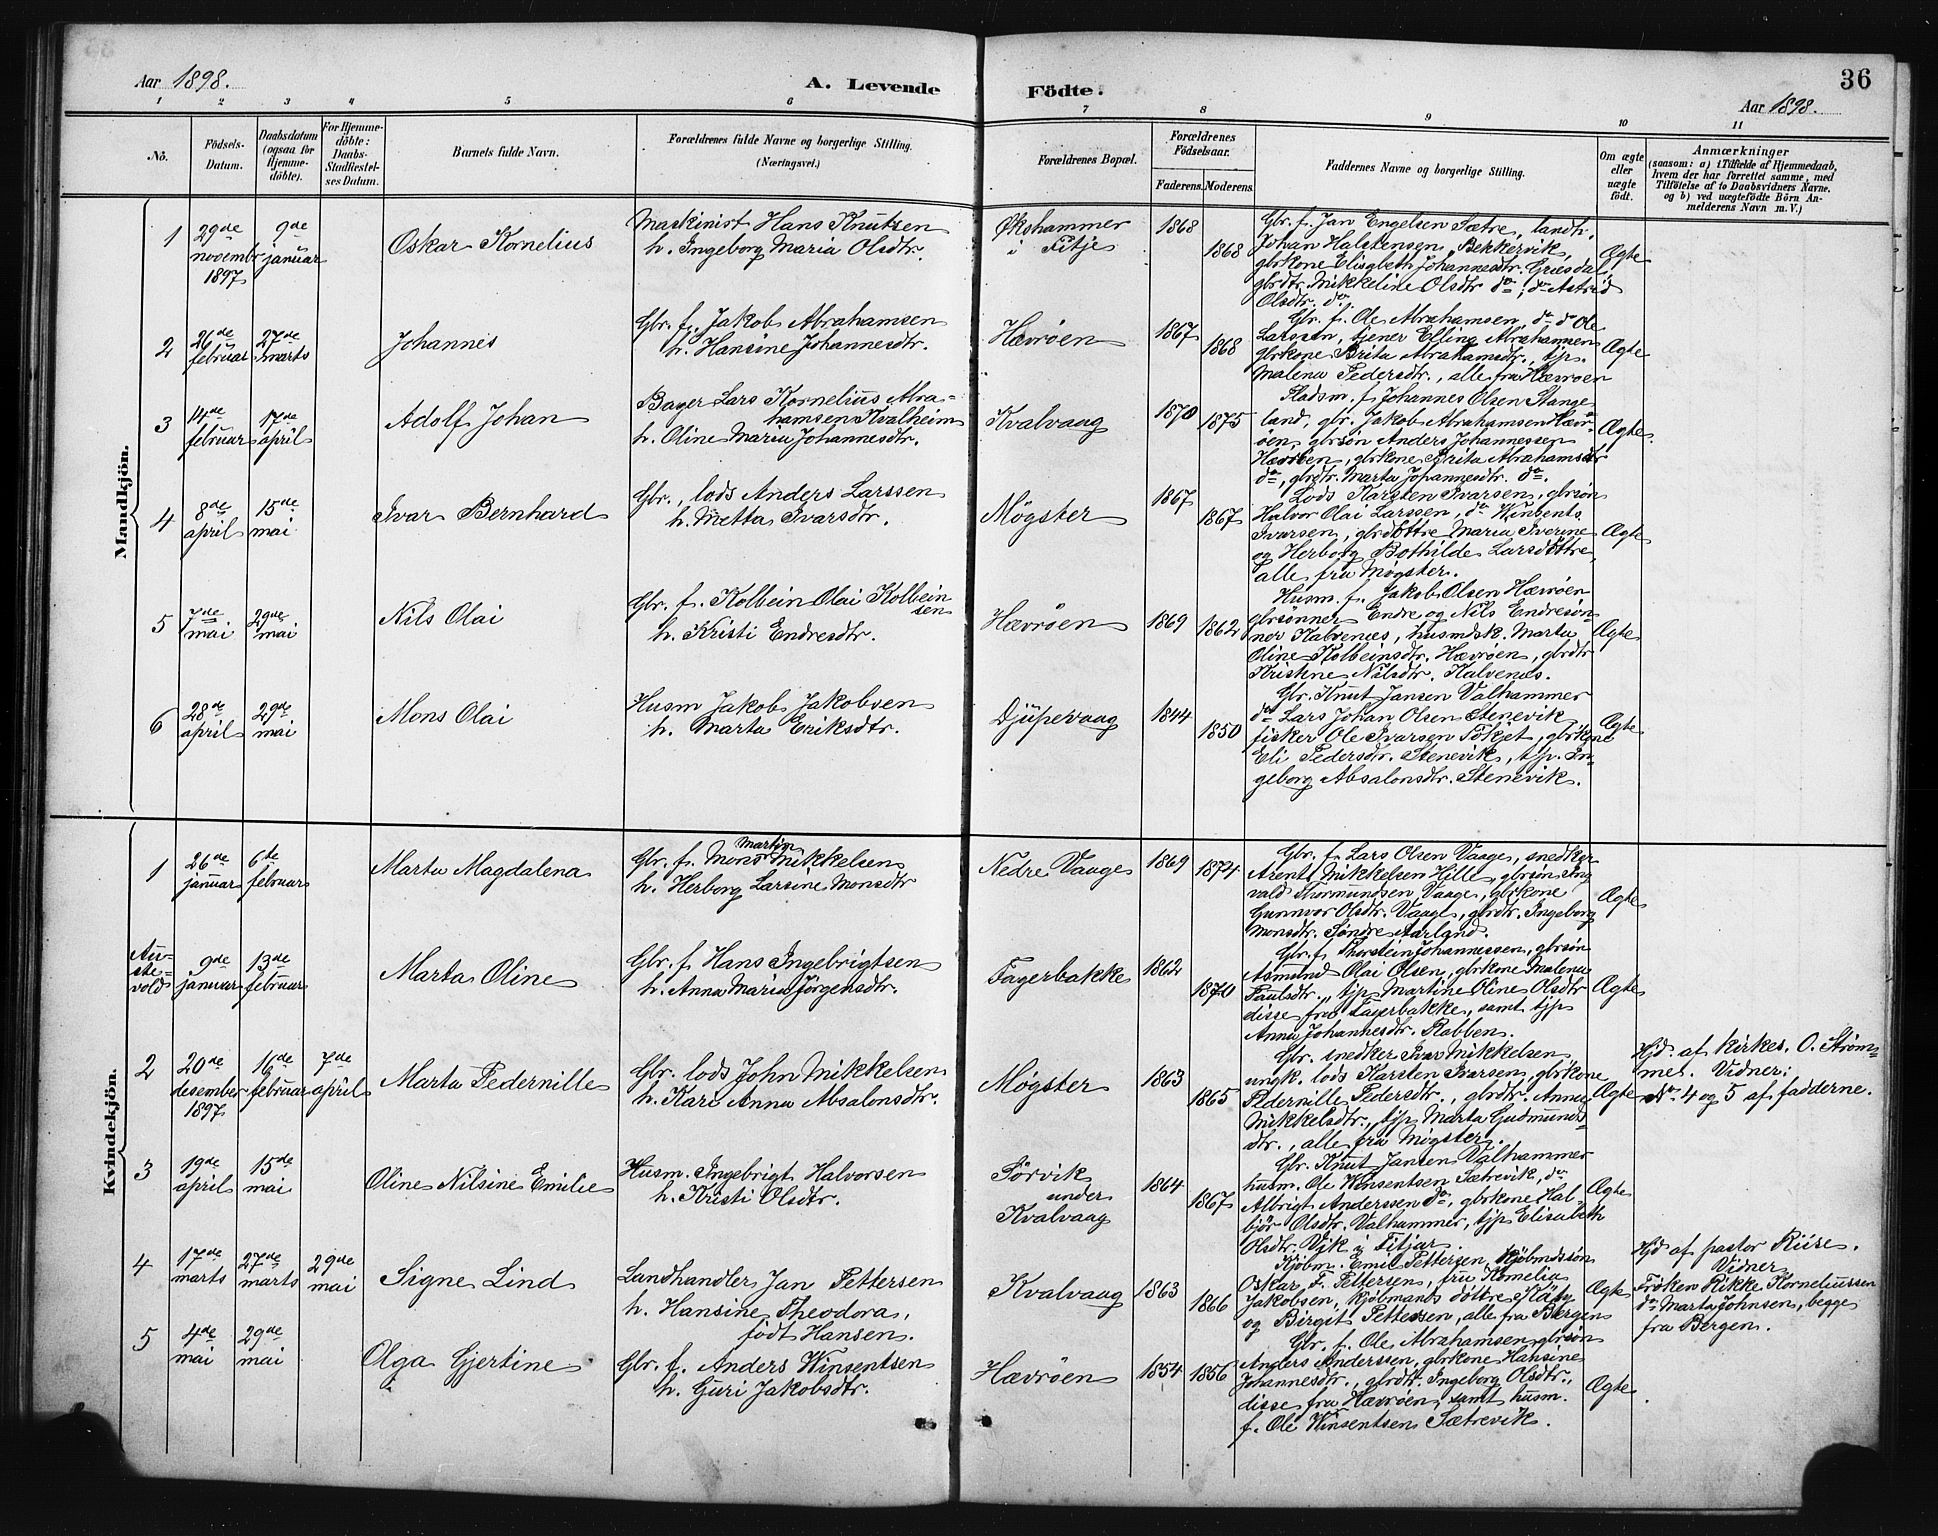 36
Aar 1898.
A. Levende Födte.
Aar 1898.
1 2 3 4 5 6 7 8 9 10 11
No.
Födsels-
Datum.
Daabsdatum
(ogsaa for
Hjemme-
döbte).
For Hjemme-
döbte:
Daabs-
Stadfæstel-
ses Datum.
Barnets fulde Navn.
Forældrenes fulde Navne og borgerlige Stilling.
(Næringsvei.)
Forældrenes Bopæl.
Forældrenes
Födselsaar.
Faderens. Moderens.
Faddernes Navne og borgerlige Stilling.
Om ægte
eller
uægte
födt.
Anmærkninger
(saasom: a) i Tilfælde af Hjemmedaab,
hvem der har forrettet samme, med
Tilföielse af to Daabsvidners Navne,
og b) ved uægtefödte Börn An-
melderens Navn m. V.)
Mandkjön.
1
29de
novembr
1897
9de
januar
Oskar Kornelius
Maskinist Hans Knutsen
h. Ingeborg Maria Olsdtr.
Økshammer
i Fitje
1868
1868
Gbr. f. Jan Engelsen Sætre, landh.
Johan Halstensen, Bekkervik,
gbrkone Elisabeth Johannesdtr. Græsdal,
gbrdtr. Mikkeline Olsdtr do; do Astrid
Olsdtr. do
Ægte
2
26de
februar
27de
marts
Johannes
Gbr. f. Jakob Abrahamsen
h. Hansine Johannesdtr.
Hævröen
1867
1868
Gbr. f. Ole Abrahamsen, do do Ole
Larssen, tjener Elling Abrahamsen
gbrkone Brita Abrahamsdtr., tjp.
Malena Pedersdtr., alle fra Hævröen
Ægte
3
14de
februar
17de
april
Adolf Johan
Bager Lars Kornelius Abra-
hamsen Kvalheim
h. Oline Maria Johannesdtr.
Kvalvaag
1870
1875
Pladsm. f. Johannes Olsen Stange
land, gbr. Jakob Abrahamsen Hævr-
öen, gbrsön Anders Johannessen
Hævröen, gbrkone Brita Abrahamsdtr
do, gbrdtr. Marta Johannesdtr. do.
Ægte.
4
8de
april
15de
mai
Ivar Bernhard
Gbr., lods Anders Larssen
h. Metta Ivarsdtr.
Møgster
1867
1867
Lods Karsten Ivarsen, gbrsön
Halvor Olai Larssen, do Winbents
Ivarsen, gbrdöttre Maria Iverine
og Herborg Bothilde Larsdöttre,
alle fra Møgster.
Ægte
5
7de
mai
29de
mai
Nils Olai
Gbr. f. Kolbein Olai Kolbein
sen
h. Kristi Endresdtr.
Hævröen
1869
1862
Husm. f. Jakob Olsen Hævröen
gbrsönner Endre og Nils Endresön-
ner Kalvenæs, husmdtr. Marta
Oline Kolbeinsdtr. Hævröen, gbrdtr
Kristine Nilsdtr. Kalvenæs.
Ægte
6
28de
april
29de
mai
Mons Olai
Husm Jakob Jakobsen
h. Marta Eriksdtr.
Djupevaag
1844
1850
Gbr. Knut Jansen Valhammer
do Lars Johan Olsen Stenevik
fisker Ole Ivarsen Fökjet, gbrkone
Eli Pedersdtr. Stenevik, tjp. In-
geborg Absalonsdtr. Stenevik.
Ægte
Kvindekjön.
1
26de
januar
6te
februar
Marta Magdalena
Gbr. f. Mons Martin Mikkelsen
h. Herborg Larsine Monsdtr
Nedre Vaage
1869
1874
Gbr. f. Lars Olsen Vaage, snedker
Arent Mikkelsen Hille, gbrsön Ing
vald Thormundsen Vaage, gbrkone
Gunnvor Olsdtr. Vaage, gbrdtr. Ingeborg
Monsdtr. Söndre Aarland.
Ægte
Au-
ste-
vold
9de
januar
13de
februar
Marta Oline
Gbr. f. Hans Ingebrigtsen
h. Anna Maria Jörgensdtr.
Fagerbakke
1862
1870
Gbr. f. Thorstein Johannessen, gbrsön
Asmund Olai Olsen, gbrkone Malena
Paulsdtr., tjp Martine Oline Olsdtr
disse fra Fagerbakke, samt tjp
Anna Johannesdtr. Rabben.
Ægte
2
20de
desember
1897
16de
februar
7de
april
Marta Pedernille
Gbr. lods John Mikkelsen
h. Kari Anna Absalonsdtr.
Møgster
1863
1865
Gbr. snedker Ivar Mikkelsen,
ungk. lods Karsten Ivarsen, gbrkone
Pedernille Pedersdtr., gbrdtr. Anna
Mikkelsdtr., tjp Marta Gudmunds
dtr., alle fra Møgster.
Ægte
Hjd. af kirkes. O. Strøm-
mel. Vidner:
No. 4 og 5 af fadderne.
3
19de
april
15de
mai
Oline Nilsine Emilie
Husm. Ingebrigt Halvorsen
h. Kristi Olsdtr.
Sørvik
under
Kvalvaag
1864
1867
Gbr. Knut Jansen Valhammer
husm. Ole Winsentsen Sætrevik, do
Albrigt Anderssen do, gbrkone Hal-
björ Olsdtr. Valhammer, tjp Elisabeth
Olsdtr. Vik i Fitjar.
Ægte
4
17de
marts
27de
marts
29de
mai
Signe Lind
Landhandler Jan Pettersen
h. Hansine Theodora,
födt Hansen.
Kvalvaag
1863
1866
Kjöbm. Emil Pettersen, Kjöbmdssön
Oskar F. Pettersen, fru Kornelia
Jakobsen, kjöbmands döttre Kaia
og Birgit Pettersen, alle fra Bergen
Ægte
Hjd af pastor Riise.
Vidner
Fröken Rikke Korneliussen
do Marta Johnsen, begge
fra Bergen.
5
4de
mai
29de
mai
Olga Gjertine
Gbr. f. Anders Winsentsen
h. Guri Jakobsdtr.
Hævröen
1854
1856
Gbr. f. Ole Abrahamsen, gbrsön
Anders Anderssen, gbrkone Hansine
Johannesdtr., gbrdtr. Ingeborg Olsdtr.,
disse fra Hævröen, samt husm.
f. Ole Winsentsen Sætrevik.
Ægte